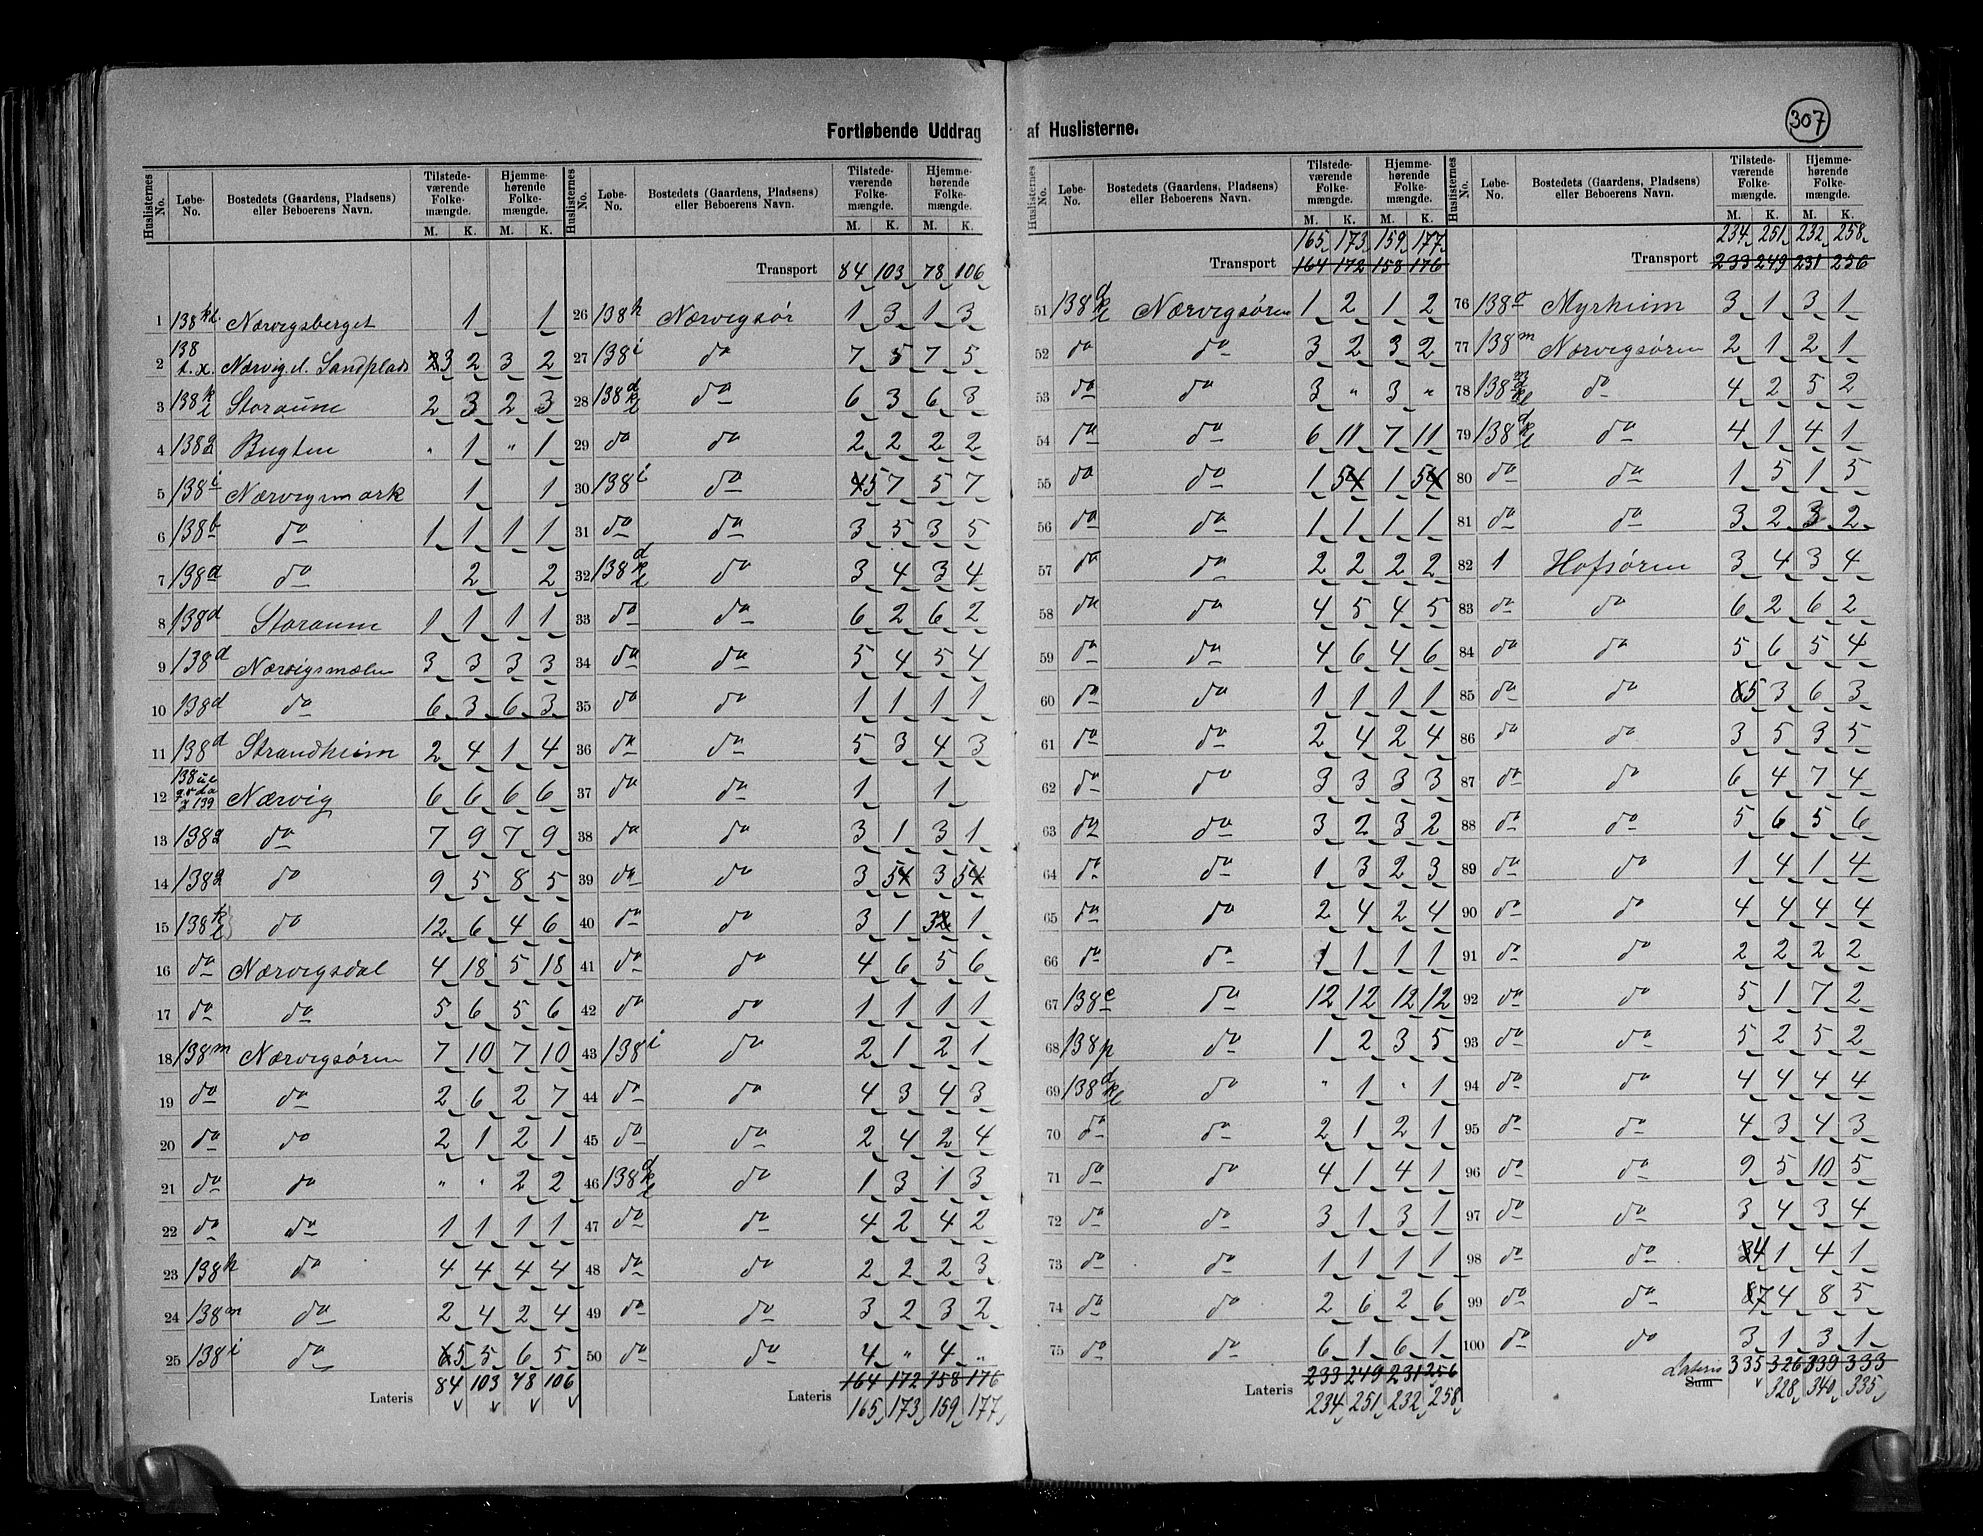 307
Fortløbende Uddrag af Huslisterne.
Huslisternes No. Løbe-No. Bostedets (Gaardens, Pladsens) eller Beboerens Navn. Tilstedeværende Folkemængde. M. K. Hjemmehørende Folkemængde. M. K.
1 138 Nærvigsberget 1 1
2 138 t.x. Nærvig d. Sandplads 3 2 3 2
3 138 k l Storaune 2 3 2 3
4 138 g Bugten " 1 " 1
5 138 i Nærvigsmark 1 1
6 138 b do 1 1 1 1
7 138 a do 2 2
8 138 d Storaune 1 1 1 1
9 138 d Nærvigsmælen 3 3 3 3
10 138 d do 6 3 6 3
11 138 d Strandheim 2 4 1 4
12 138 Nærvig 6 6 6 6
13 138 g do 7 9 7 9
14 138 g do 9 5 8 5
15 138 k l do 12 6 4 6
16 do Nærvigsdal 4 18 5 18
17 do do 5 6 5 6
18 138 m Nærvigsøren 7 10 7 10
19 do do 2 6 2 7
20 do do 2 1 2 1
21 do do " " 2 2
22 do do 1 1 1 1
23 138 k do 4 4 4 4
24 138 m do 2 4 2 4
25 138 i do 5 5 6 5
Lateris 84 103 78 106
Huslisternes No. Løbe-No. Bostedets (Gaardens, Pladsens) eller Beboerens Navn. Tilstedeværende Folkemængde. M. K. Hjemmehørende Folkemængde. M. K.
Transport 84 103 78 106
26 138 k Nærvigsør 1 3 1 3
27 138 i do 7 5 7 5
28 138 d k l do 6 3 6 3
29 do do 2 2 2 2
30 138 i do 5 7 5 7
31 do do 3 5 3 5
32 138 d k l do 3 4 3 4
33 do do 6 2 6 2
34 do do 5 4 5 4
35 do do 1 1 1 1
36 do do 5 3 4 3
37 do do 1 1
38 do do 3 1 3 1
39 do do 3 5 3 5
40 do do 3 1 3 1
41 do do 4 6 5 6
42 do do 1 1 1 1
43 138 i do 2 1 2 1
44 do do 4 3 4 3
45 do do 2 4 2 4
46 138 d k l do 1 3 1 3
47 do do 4 2 4 2
48 do do 2 2 2 3
49 do do 3 2 3 2
50 do do 4 " 4 "
Lateris 164 172 158 176
165 173 159 177
Huslisternes No. Løbe-No. Bostedets (Gaardens, Pladsens) eller Beboerens Navn. Tilstedeværende Folkemængde. M. K. Hjemmehørende Folkemængde. M. K.
165 173 159 177
Transport 164 172 158 176
51 138 d k l Nærvigsøren 1 2 1 2
52 do do 3 2 3 2
53 do do 3 " 3 "
54 do do 6 11 7 11
55 do do 1 5 1 5
56 do do 1 1 1 1
57 do do 2 2 2 2
58 do do 4 5 4 5
59 do do 4 6 4 6
60 do do 1 1 1 1
61 do do 2 4 2 4
62 do do 3 3 3 3
63 do do 3 2 3 2
64 do do 1 3 2 3
65 do do 2 4 2 4
66 do do 1 1 1 1
67 138 e do 12 12 12 12
68 138 p do 1 2 3 5
69 138 d k l do " 1 " 1
70 do do 2 1 2 1
71 do do 4 1 4 1
72 do do 3 1 3 1
73 do do 1 1 1 1
74 do do 2 6 2 6
75 do do 6 1 6 1
Lateris 233 249 231 256
234 251 232 258
Huslisternes No. Løbe-No. Bostedets (Gaardens, Pladsens) eller Beboerens Navn. Tilstedeværende Folkemængde. M. K. Hjemmehørende Folkemængde. M. K.
234 251 232 258
Transport 233 249 231 256
76 138 o Myrheim 3 1 3 1
77 138 m Nærvigsøren 2 1 2 1
78 138 do 4 2 5 2
79 138 d k l do 4 1 4 1
80 do do 1 5 1 5
81 do do 3 2 3 2
82 1 Hofsøren 3 4 3 4
83 do do 6 2 6 2
84 do do 5 6 5 4
85 do do 5 3 6 3
86 do do 3 5 3 5
87 do do 6 4 7 4
88 do do 5 6 5 6
89 do do 1 4 1 4
90 do do 4 4 4 4
91 do do 2 2 2 2
92 do do 5 1 7 2
93 do do 5 2 5 2
94 do do 4 4 4 4
95 do do 4 3 4 3
96 do do 9 5 10 5
97 do do 3 4 3 4
98 do do 4 1 4 1
99 do do 7 4 8 5
100 do do 3 1 3 1
Lateris Sum 335 326 339 333
328 340 335